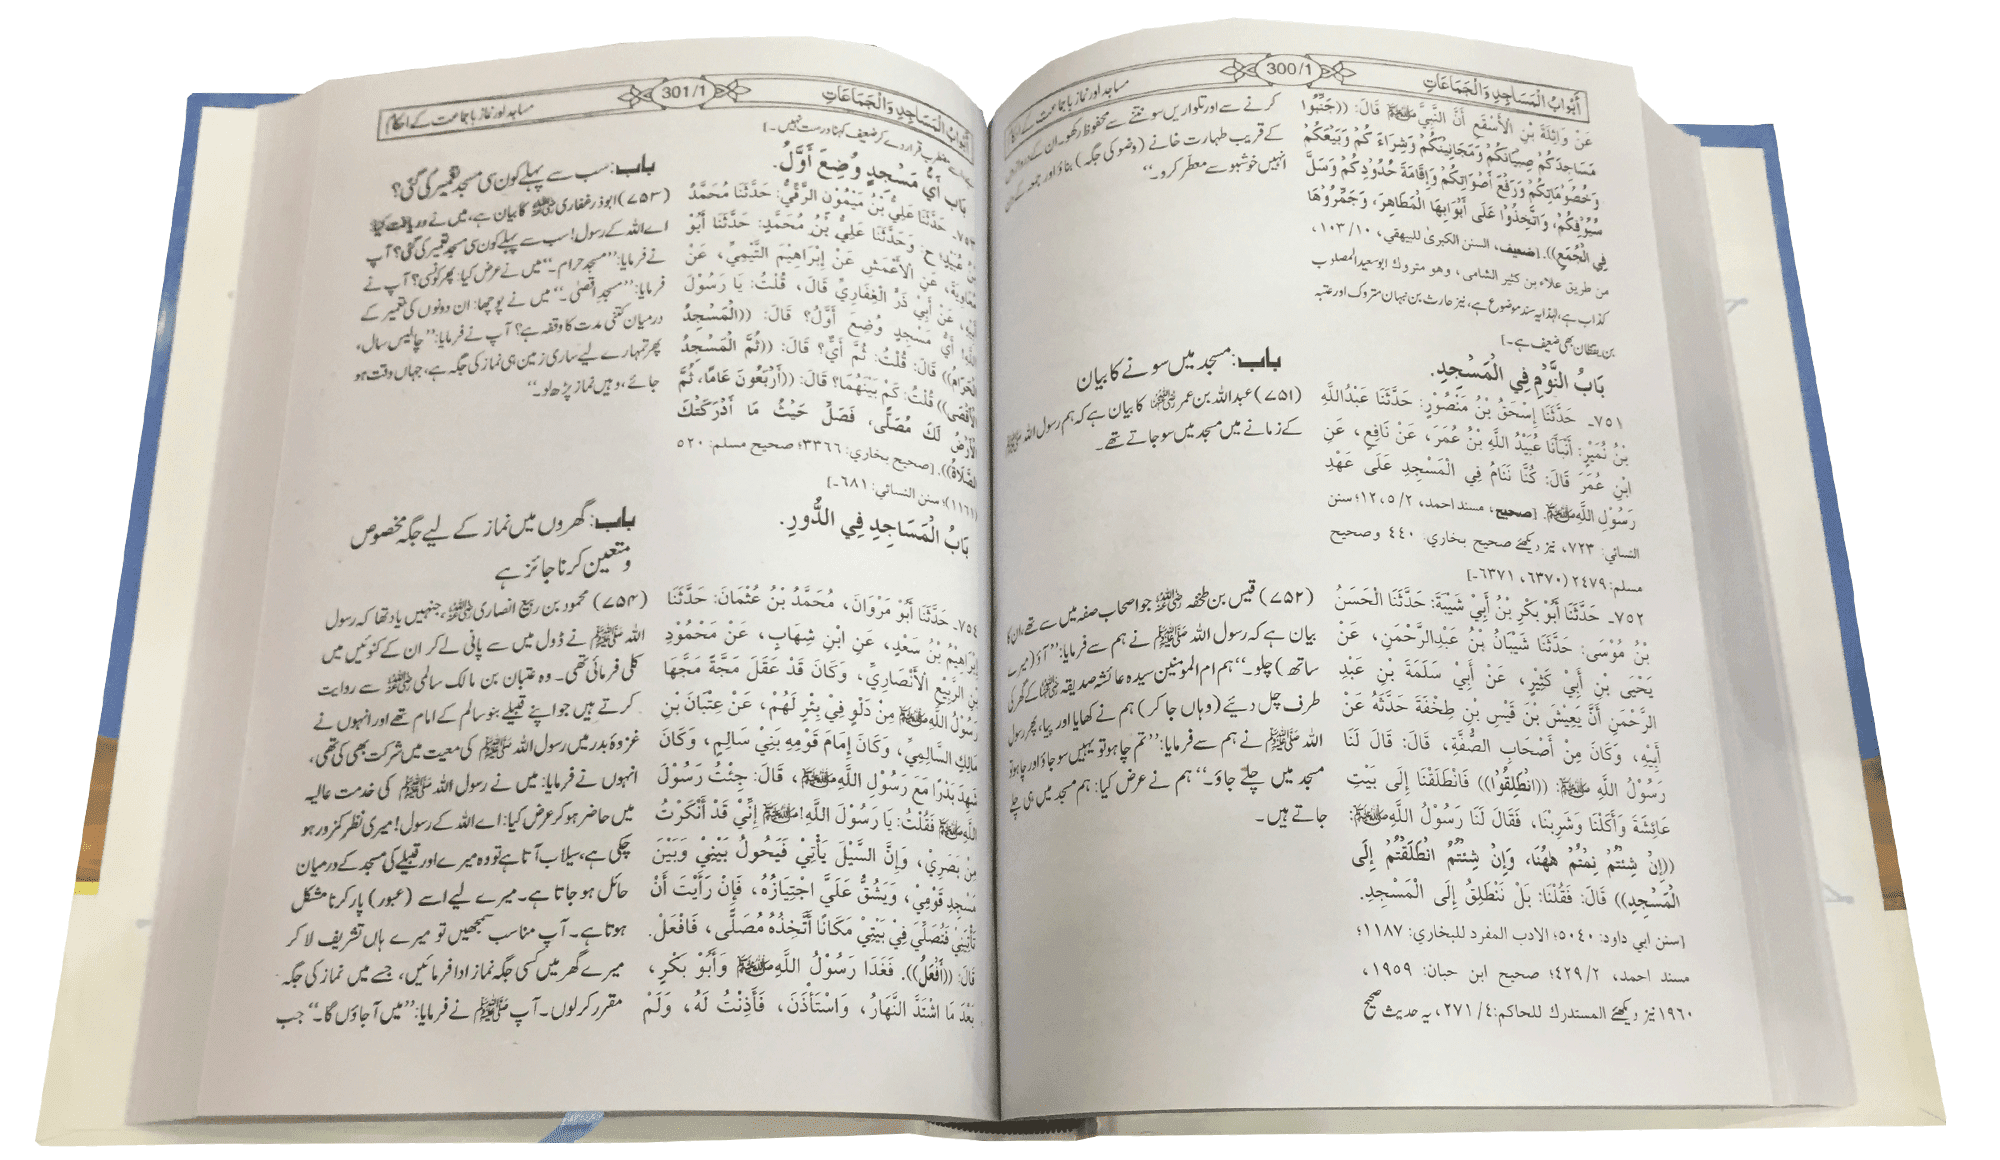 أَبْوَابُ الْمَسَاجِدِ وَالْجَمَاعَاتِ
300/1
مساجد اور نماز باجماعت کے احکام
عَنْ وَاثِلَةَ بْنِ الْأَسْقَعِ أَنَّ النَّبِيَّ ﷺ قَالَ: ((جَنِّبُوْا
مَسَاجِدَكُمْ صِبْيَانَكُمْ وَمَجَانِيْنَكُمْ وَشِرَاءَ كُمْ وَبَيْعَكُمْ
وَخُصُوْمَاتِكُمْ وَرَفْعَ أَصْوَاتِكُمْ وَإِقَامَةَ حُدُوْدِكُمْ وَسَلَّ
سُيُوْفِكُمْ، وَاتَّخِذُوْا عَلَى أَبْوَابِهَا الْمَطَاهِرَ، وَجَمِّرُوْهَا
فِي الْجُمَعِ)). [ضعيف، السنن الكبرىٰ للبيهقي، ١٠٣/١٠،
من طريق علاء بن كثير الشامي، وهو متروك ابو سعيد المصلوب
كذاب ہے، لہٰذا یہ سند موضوع ہے، نیز حارث بن نبہان متروک اور عتبہ
بن یقظان بھی ضعیف ہے۔]
بَابُ النَّوْمِ فِي الْمَسْجِدِ.
٧٥١۔ حَدَّثَنَا إِسْحَقُ بْنُ مَنْصُوْرٍ: حَدَّثَنَا عَبْدُاللَّهِ
بْنُ نُمَيْرٍ: أَنْبَأَنَا عُبَيْدُ اللَّهِ بْنُ عُمَرَ، عَنْ نَافِعٍ، عَنِ
ابْنِ عُمَرَ قَالَ: كُنَّا نَنَامُ فِي الْمَسْجِدِ عَلَى عَهْدِ
رَسُوْلِ اللَّهِ ﷺ. [صحيح، مسند احمد، ٢/ ٥، ١٢؛ سنن
النسائي: ٧٢٣، نیز دیکھئے صحيح بخاري: ٤٤٠ وصحيح
مسلم: ٢٤٧٩ (٦٣٧٠، ٦٣٧١)۔]
٧٥٢۔ حَدَّثَنَا أَبُوْ بَكْرِ بْنُ أَبِيْ شَيْبَةَ: حَدَّثَنَا الْحَسَنُ
بْنُ مُوْسَى: حَدَّثَنَا شَيْبَانُ بْنُ عَبْدِالرَّحْمَنِ، عَنْ
يَحْيَى بْنِ أَبِيْ كَثِيْرٍ، عَنْ أَبِيْ سَلَمَةَ بْنِ عَبْدِ
الرَّحْمَنِ أَنَّ يَعِيْشَ بْنَ قَيْسِ بْنِ طِخْفَةَ حَدَّثَهُ عَنْ
أَبِيْهِ، وَكَانَ مِنْ أَصْحَابِ الصُّفَّةِ، قَالَ: قَالَ لَنَا
رَسُوْلُ اللَّهِ ﷺ: ((انْطَلِقُوْا)) فَانْطَلَقْنَا إِلَى بَيْتِ
عَائِشَةَ وَأَكَلْنَا وَشَرِبْنَا، فَقَالَ لَنَا رَسُوْلُ اللَّهِ ﷺ:
((إِنْ شِئْتُمْ نِمْتُمْ هٰهُنَا، وَإِنْ شِئْتُمْ انْطَلَقْتُمْ إِلَى
الْمَسْجِدِ)) قَالَ: فَقُلْنَا: بَلْ نَنْطَلِقُ إِلَى الْمَسْجِدِ.
[سنن ابي داود: ٥٠٤٠؛ الادب المفرد للبخاري: ١١٨٧؛
مسند احمد، ٢/ ٤٢٩؛ صحيح ابن حبان: ١٩٥٩،
١٩٦٠ نیز دیکھئے المستدرك للحاكم: ٤/ ٢٧١، یہ حدیث صحیح
کرنے سے اور تلواریں سونتنے سے محفوظ رکھو۔ ان کے دروازوں
کے قریب طہارت خانے (وضو کی جگہ) بناؤ اور جمعہ کے دن
انہیں خوشبو سے معطر کرو۔‘‘
باب: مسجد میں سونے کا بیان
(۷۵۱) عبداللہ بن عمر رضی اللہ عنہما کا بیان ہے کہ ہم رسول اللہ ﷺ
کے زمانے میں مسجد میں سو جاتے تھے۔
(۷۵۲) قیس بن طخفہ رضی اللہ عنہ جو اصحاب صفہ میں سے تھے، ان کا
بیان ہے کہ رسول اللہ ﷺ نے ہم سے فرمایا: ’’آؤ (میرے
ساتھ) چلو۔‘‘ ہم ام المومنین سیدہ عائشہ صدیقہ رضی اللہ عنہا کے گھر کی
طرف چل دیئے (وہاں جا کر) ہم نے کھایا اور پیا، پھر رسول
اللہ ﷺ نے ہم سے فرمایا: ’’تم چاہو تو یہیں سو جاؤ اور چاہو تو
مسجد میں چلے جاؤ۔‘‘ ہم نے عرض کیا: ہم مسجد میں ہی چلے
جاتے ہیں۔
أَبْوَابُ الْمَسَاجِدِ وَالْجَمَاعَاتِ
301/1
مساجد اور نماز باجماعت کے احکام
مضطرب قرار دے کر ضعیف کہنا درست نہیں۔]
بَابُ أَيُّ مَسْجِدٍ وُضِعَ أَوَّلُ.
٧٥٣۔ حَدَّثَنَا عَلِيُّ بْنُ مَيْمُوْنٍ الرَّقِّيُّ: حَدَّثَنَا مُحَمَّدُ
بْنُ عُبَيْدٍ؛ ح: وَحَدَّثَنَا عَلِيُّ بْنُ مُحَمَّدٍ: حَدَّثَنَا أَبُوْ
مُعَاوِيَةَ، عَنِ الْأَعْمَشِ عَنْ إِبْرَاهِيْمَ التَّيْمِيِّ، عَنْ
أَبِيْهِ، عَنْ أَبِيْ ذَرٍّ الْغِفَارِيِّ قَالَ، قُلْتُ: يَا رَسُوْلَ
اللَّهِ! أَيُّ مَسْجِدٍ وُضِعَ أَوَّلُ؟ قَالَ: ((الْمَسْجِدُ
الْحَرَامُ)) قَالَ: قُلْتُ: ثُمَّ أَيُّ؟ قَالَ: ((ثُمَّ الْمَسْجِدُ
الْأَقْصَى)) قُلْتُ: كَمْ بَيْنَهُمَا؟ قَالَ: ((أَرْبَعُوْنَ عَامًا، ثُمَّ
الْأَرْضُ لَكَ مُصَلًّى، فَصَلِّ حَيْثُ مَا أَدْرَكَتْكَ
الصَّلَاةُ)). [صحيح بخاري: ٣٣٦٦؛ صحيح مسلم: ٥٢٠
(١١٦١)؛ سنن النسائي: ٦٨١۔]
بَابُ الْمَسَاجِدِ فِي الدُّورِ.
٧٥٤۔ حَدَّثَنَا أَبُوْ مَرْوَانَ، مُحَمَّدُ بْنُ عُثْمَانَ: حَدَّثَنَا
إِبْرَاهِيْمُ بْنُ سَعْدٍ، عَنِ ابْنِ شِهَابٍ، عَنْ مَحْمُوْدِ
بْنِ الرَّبِيْعِ الْأَنْصَارِيِّ، وَكَانَ قَدْ عَقَلَ مَجَّةً مَجَّهَا
رَسُوْلُ اللَّهِ ﷺ مِنْ دَلْوٍ فِيْ بِئْرٍ لَهُمْ، عَنْ عِتْبَانَ بْنِ
مَالِكٍ السَّالِمِيِّ، وَكَانَ إِمَامَ قَوْمِهِ بَنِيْ سَالِمٍ، وَكَانَ
شَهِدَ بَدْرًا مَعَ رَسُوْلِ اللَّهِ ﷺ، قَالَ: جِئْتُ رَسُوْلَ
اللَّهِ ﷺ فَقُلْتُ: يَا رَسُوْلَ اللَّهِ! ﷺ إِنِّيْ قَدْ أَنْكَرْتُ
مِنْ بَصَرِيْ، وَإِنَّ السَّيْلَ يَأْتِيْ فَيَحُوْلُ بَيْنِيْ وَبَيْنَ
مَسْجِدِ قَوْمِيْ، وَيَشُقُّ عَلَيَّ اجْتِيَازُهُ، فَإِنْ رَأَيْتَ أَنْ
تَأْتِيَنِيْ فَتُصَلِّيَ فِيْ بَيْتِيْ مَكَانًا أَتَّخِذُهُ مُصَلًّى، فَافْعَلْ.
قَالَ: ((أَفْعَلُ)). فَغَدَا رَسُوْلُ اللَّهِ ﷺ وَأَبُوْ بَكْرٍ،
بَعْدَ مَا اشْتَدَّ النَّهَارُ، وَاسْتَأْذَنَ، فَأَذِنْتُ لَهُ، وَلَمْ
باب: سب سے پہلے کون سی مسجد تعمیر کی گئی؟
(۷۵۳) ابوذر غفاری رضی اللہ عنہ کا بیان ہے، میں نے دریافت کیا
اے اللہ کے رسول! سب سے پہلے کون سی مسجد تعمیر کی گئی؟ آپ
نے فرمایا: ’’مسجد حرام۔‘‘ میں نے عرض کیا: پھر کونسی؟ آپ نے
فرمایا: ’’مسجدِ اقصیٰ۔‘‘ میں نے پوچھا: ان دونوں کی تعمیر کے
درمیان کتنی مدت کا وقفہ ہے؟ آپ نے فرمایا: ’’چالیس سال،
پھر تمہارے لیے ساری زمین ہی نماز کی جگہ ہے، جہاں وقت ہو
جائے، وہیں نماز پڑھ لو۔‘‘
باب: گھروں میں نماز کے لیے جگہ مخصوص
و متعین کرنا جائز ہے
(۷۵۴) محمود بن ربیع انصاری رضی اللہ عنہ، جنہیں یاد تھا کہ رسول
اللہ ﷺ نے ڈول میں سے پانی لے کر ان کے کنوئیں میں
کلی فرمائی تھی۔ وہ عتبان بن مالک سالمی رضی اللہ عنہ سے روایت
کرتے ہیں جو اپنے قبیلے بنو سالم کے امام تھے اور انہوں نے
غزوۂ بدر میں رسول اللہ ﷺ کی معیت میں شرکت بھی کی تھی،
انہوں نے فرمایا: میں نے رسول اللہ ﷺ کی خدمت عالیہ
میں حاضر ہو کر عرض کیا: اے اللہ کے رسول! میری نظر کمزور ہو
چکی ہے، سیلاب آتا ہے تو وہ میرے اور قبیلے کی مسجد کے درمیان
حائل ہو جاتا ہے۔ میرے لیے اسے (عبور) پار کرنا مشکل
ہوتا ہے۔ آپ مناسب سمجھیں تو میرے ہاں تشریف لا کر
میرے گھر میں کسی جگہ نماز ادا فرمائیں، جسے میں نماز کی جگہ
مقرر کر لوں۔ آپ ﷺ نے فرمایا: ’’میں آ جاؤں گا۔‘‘ جب